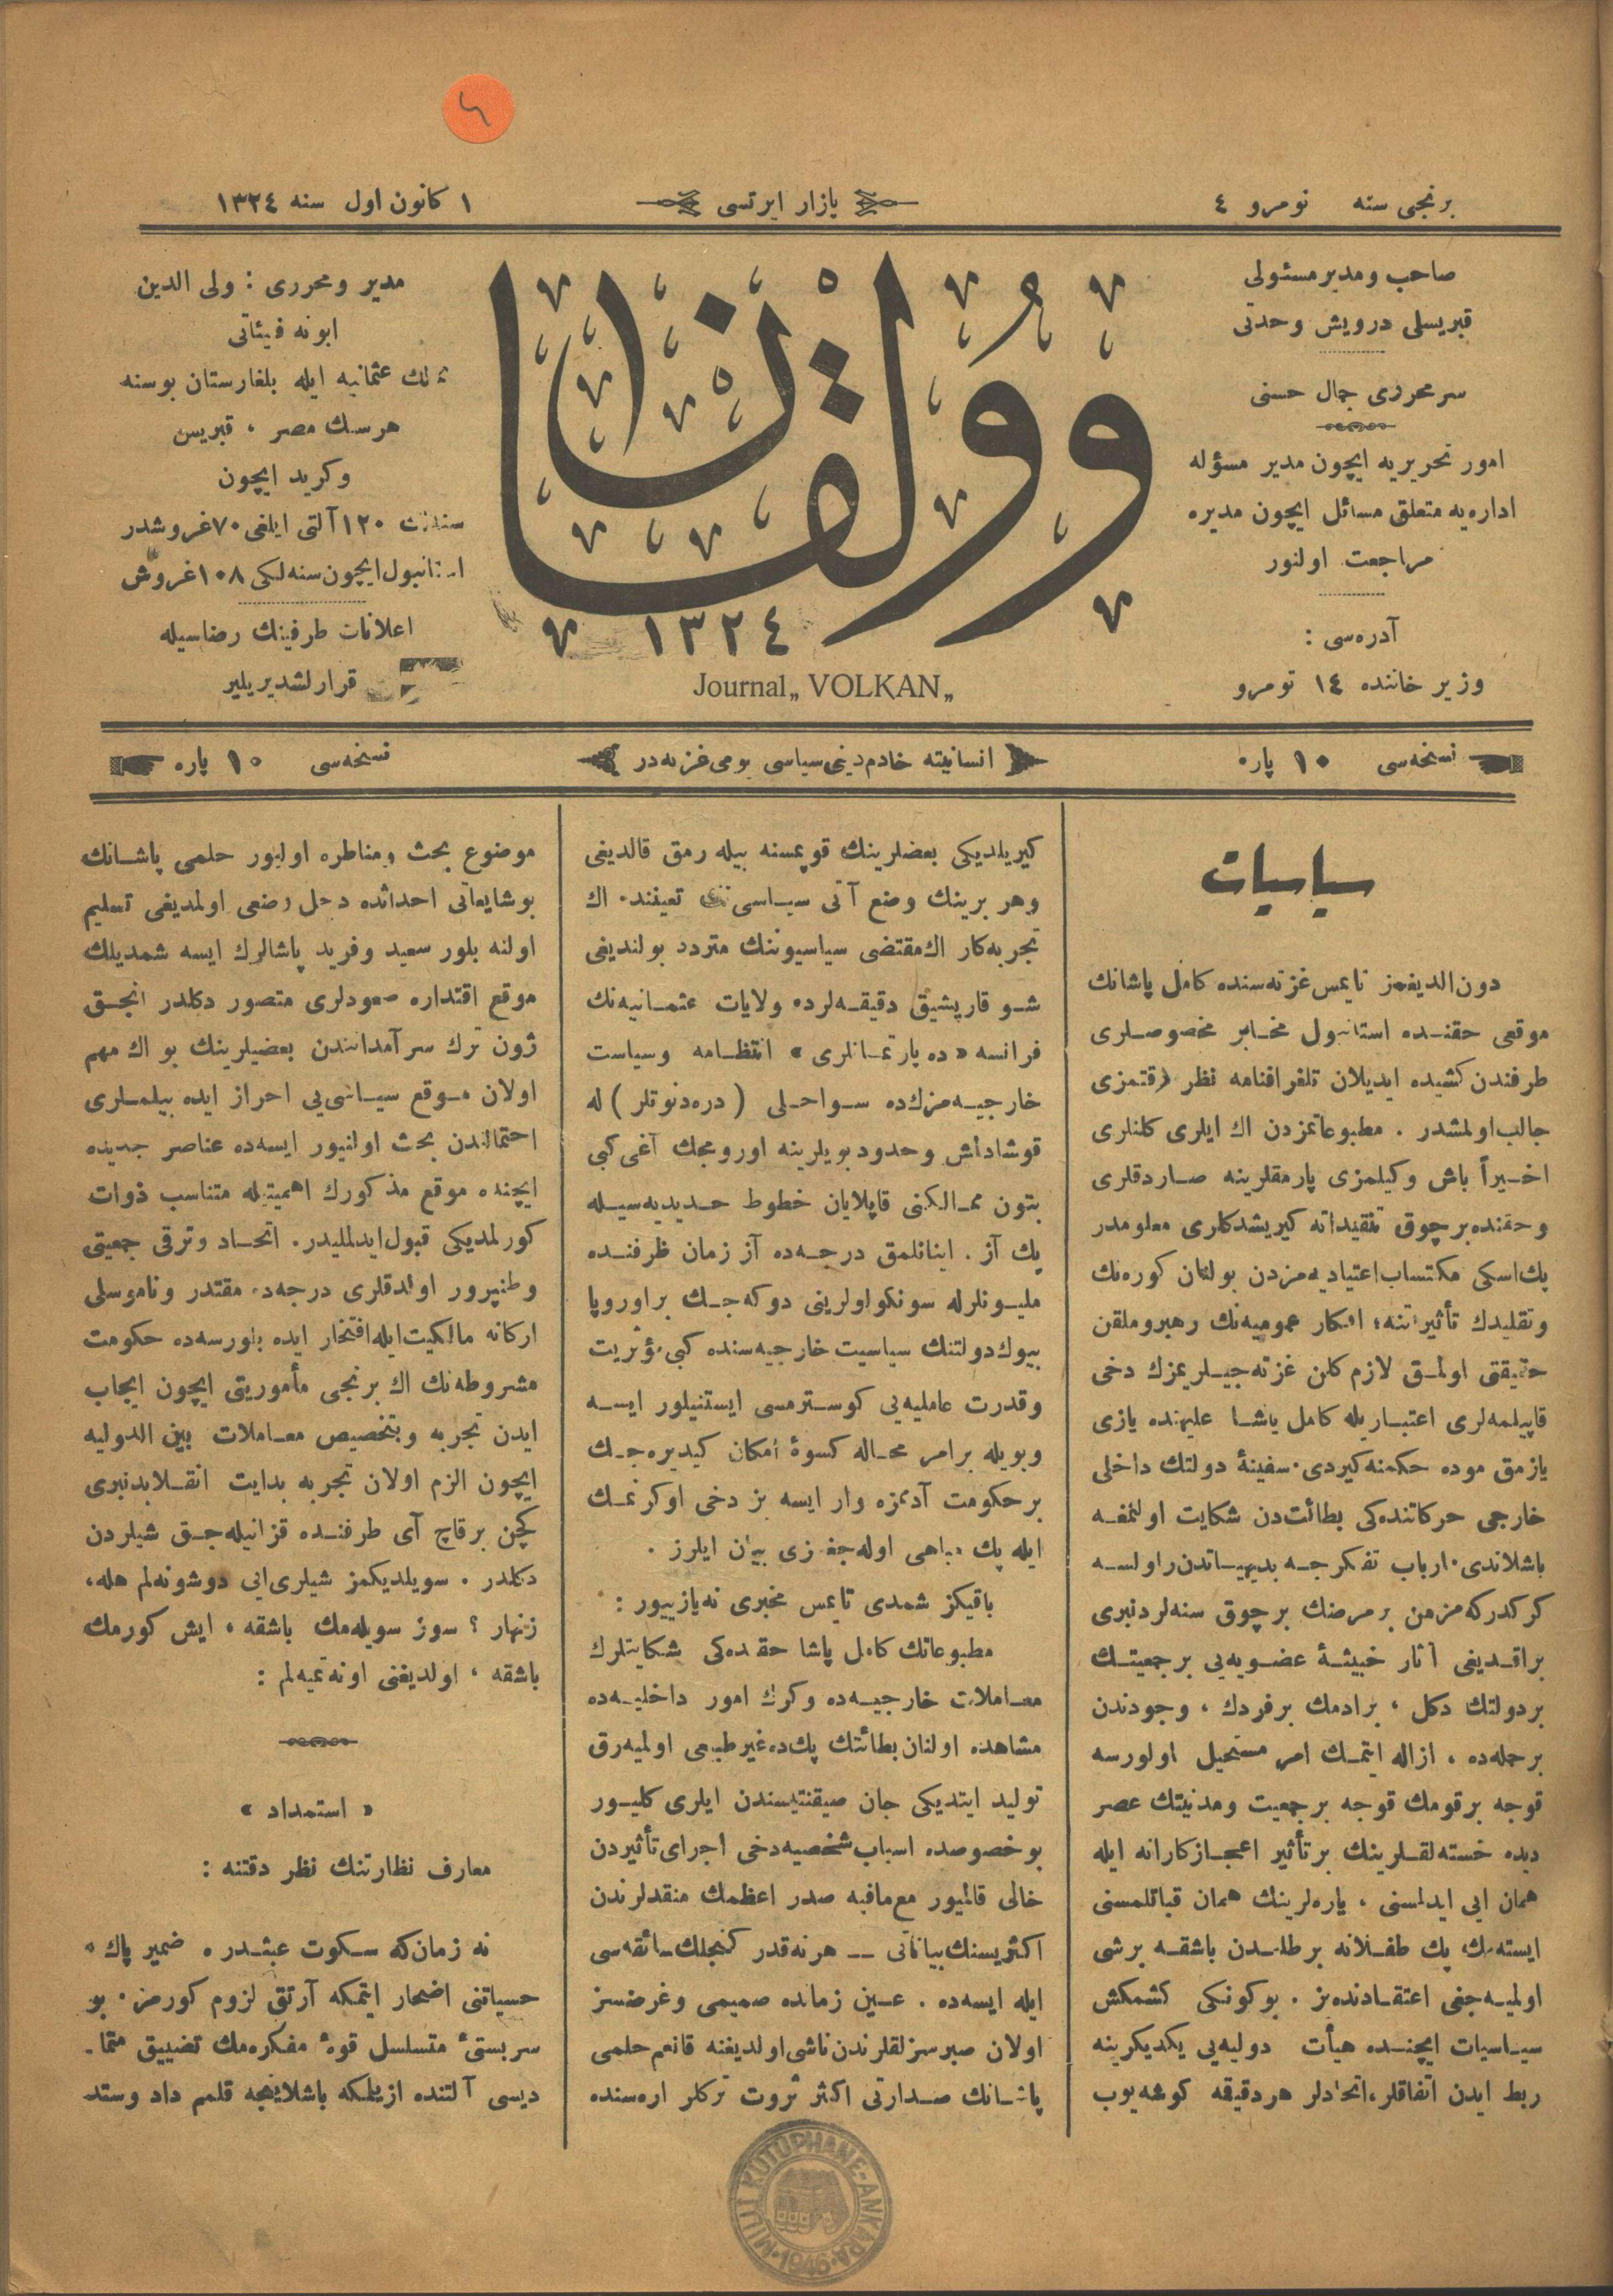 برنجی سنه نومرو ٤
بازار ایرتسی
١ كانون اول سنه ١٣٢٤
صاحب ومدیر مسئولی
قبریسلی درویش وحدتی
سر محرری جمال حسنی
امور تحریریه ایچون مدیر مسؤله
اداره‌یه متعلق مسائل ایچون مدیره
مراجعت اولنور
آدره‌سی :
وزیر خاننده ١٤ نومرو
وولقان
١٣٢٤
Journal „ VOLKAN „
مدیر ومحرری : ولی الدین
ابونه فیئاتی
عثمانیه ایله بلغارستان بوسنه
هرسك مصر ، قبریس
وكرید ایچون
١٢٠ آلتی ایلغی ٧٠ غروشدر
استانبول ایچون سنه‌لكی ١٠٨ غروش
اعلانات طرفینك رضاسیله
قرارلشدیریلیر
نسخه‌سی ١٠ پاره
انسانیته خادم دینی سیاسی یومی غزته‌در
نسخه‌سی ١٠ پاره
سیاسیات
دون الدیغمز تایمس غزته‌سنده كامل پاشانك
موقعی حقنده استانبول مخابر مخصوصلری
طرفندن كشیده ایدیلان تلغرافنامه نظر دقتمزی
جالب اولمشدر . مطبوعاتمزدن اك ایلری كلنلری
اخیراً باش وكیلمزی پارمقلرینه صاردقلری
وحقنده برچوق تنقیداته كیریشدكلری معلومدر
پك اسكی مكتساب اعتیادیه‌مزدن بولنان كوره‌نك
وتقلیدك تأثیراتنه؛ افكار عمومیه‌نك رهبر وملقن
حقیقتی اولمق لازم كلن غزته‌جیلریمزك دخی
قاپیلمه‌لری اعتباریله كامل پاشا علیهنده یازی
یازمق موده حكمنه كیردی. سفینهٔ دولتك داخلی
خارجی حركاتنده‌كی بطائت‌دن شكایت اولنمغه
باشلاندی. ارباب تفكرجه بدیهیاتدن‌راولسه
كركدركه مزمن بر مرضك برچوق سنه‌لردنبری
براقدیغی آثار خبیثهٔ عضویه‌یی برجمعیتك
بردولتك دكل ، برادمك برفردك ، وجودندن
برحمله‌ده ، ازاله ایتمك امر مستحیل اولورسه
قوجه برقومك قوجه برجمعیت ومدنیتك عصر
دیده خسته‌لقلرینك برتأثیر اعجازكارانه ایله
همان ایی ایدلمسنی ، یاره‌لرینك همان قپاتلمسنی
ایسته‌مك پك طفلانه برطلبدن باشقه برشی
اولمیه‌جغی اعتقادنده‌یز . بوكونكی كشمكش
سیاسیات ایچنده هیأت دولیه‌یی یكدیكرینه
ربط ایدن اتفاقلر، اتحادلر هردقیقه كوشه‌یوب
كیریلدیكی بعضلرینك قوپمسنه بیله رمق قالدیغی
وهر برینك وضع آتی سیاسی تعیننده اك
تجربه‌كار اك مقتضی سیاسیونك متردد بولندیغی
شو قارپشیق دقیقه‌لرده ولایات عثمانیه‌نك
فرانسه « ده پارتمانلری » انتظامه وسیاست
خارجیه‌مزك‌ده سواحلی ( دره‌دنوتلر ) له
قوشاداش وحدود بویلرینه اورومجك آغی كبی
بتون ممالكنی قاپلایان خطوط حدیدیه‌سیله
پك آز . اینانلمق درجه‌ده آز زمان ظرفنده
ملیونلرله سونكواولرینی دوكه‌جك براوروپا
بیوك دولتنك سیاسیت خارجیه‌سنده كبی مؤثریت
وقدرت عاملیه‌یی كوسترمسی ایستنیلور ایسه
وبویله برامر محاله كسوهٔ امكان كیدیره‌جك
برحكومت آدمزه وار ایسه بز دخی اوكرنمك
ایله پك مباهی اوله‌جغمزی بیان ایلرز .
باقیكز شمدی تایمس مخبری نه‌یازییور :
مطبوعاتك كامل پاشا حقنده‌كی شكایتلرك
معاملات خارجیه‌ده وكرك امور داخلیه‌ده
مشاهده اولنان بطائتك پك‌ده غیرطبیعی اولمیه‌رق
تولید ایتدیكی جان صیقنتیسندن ایلری كلیور
بوخصوصده اسباب شخصیه‌دخی اجرای تأثیردن
خالی قالمیور مع‌مافیه صدر اعظمك منقدلرندن
اكثریسنك بیاناتی — هرنه‌قدر كنجلك سائقه‌سی
ایله ایسه‌ده . عین زمانده صمیمی وغرضسز
اولان صبرسزلقلرندن ناشی اولدیغنه قانعم حلمی
پاشانك صدارتی اكثر ثروت تركلر اره‌سنده
موضوع بحث ومناطره اولیور حلمی پاشانك
بوشایعاتی احداثده دخل وضعی اولمدیغی تسلیم
اولنه بلور سعید وفرید پاشالرك ایسه شمدیلك
موقع اقتداره صعودلری متصور دكلدر انجق
ژون ترك سرآمدانندن بعضیلرینك بو اك مهم
اولان موقع سیاسی‌یی احراز ایده بیلملری
احتمالندن بحث اولنیور ایسه‌ده عناصر جدیده
ایچنده موقع مذكورك اهمیتیله متناسب ذوات
كورلمدیكی قبول ایدلملیدر. اتحاد وترقی جمعیتی
وطنپرور اولدقلری درجه‌ده مقتدر وناموسلی
اركانه مالكیت ایله افتخار ایده بلورسه‌ده حكومت
مشروطه‌نك اك برنجی مأموریتی ایچون ایجاب
ایدن تجربه وبتخصیص معاملات بین الدولیه
ایچون الزم اولان تجربه بدایت انقلابدنبری
كچن برقاچ آی ظرفنده قزانیله‌جق شیلردن
دكلدر . سویلدیكمز شیلری ایی دوشونه‌لم هله،
زنهار ؟ سوز سویله‌مك باشقه ، ایش كورمك
باشقه ، اولدیغنی اونه‌تمیه‌لم :
« استمداد »
معارف نظارتنك نظر دقتنه :
نه زمان‌كه سكوت عبثدر ، ضمیر پاك ،
حسیاتنی اضحار ایتمكه آرتق لزوم كورمز. بو
سربستیٔ متسلسل قوهٔ مفكره‌مك تضییق متما‌-
دیسی آلتنده ازیلمكه باشلاینجه قلمم داد وستد
MİLLİ KÜTÜPHANE-ANKARA
1946